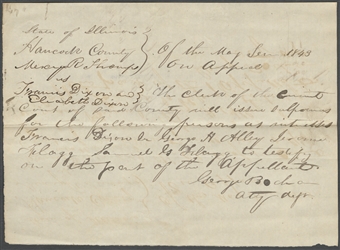 State of Illinois
Hancock County
Of the May Term 1843
Mercy R Thompson
On Appeal
vs
Francis Dixon &
Elizabeth Dixon
The Clerk of the Circuit
Court of said County will issue
for the following persons as witnesses
Francis Dixon George H Alley
Flagg Samuel G Flagg to testify
on the part of the Appellant
George
Atty